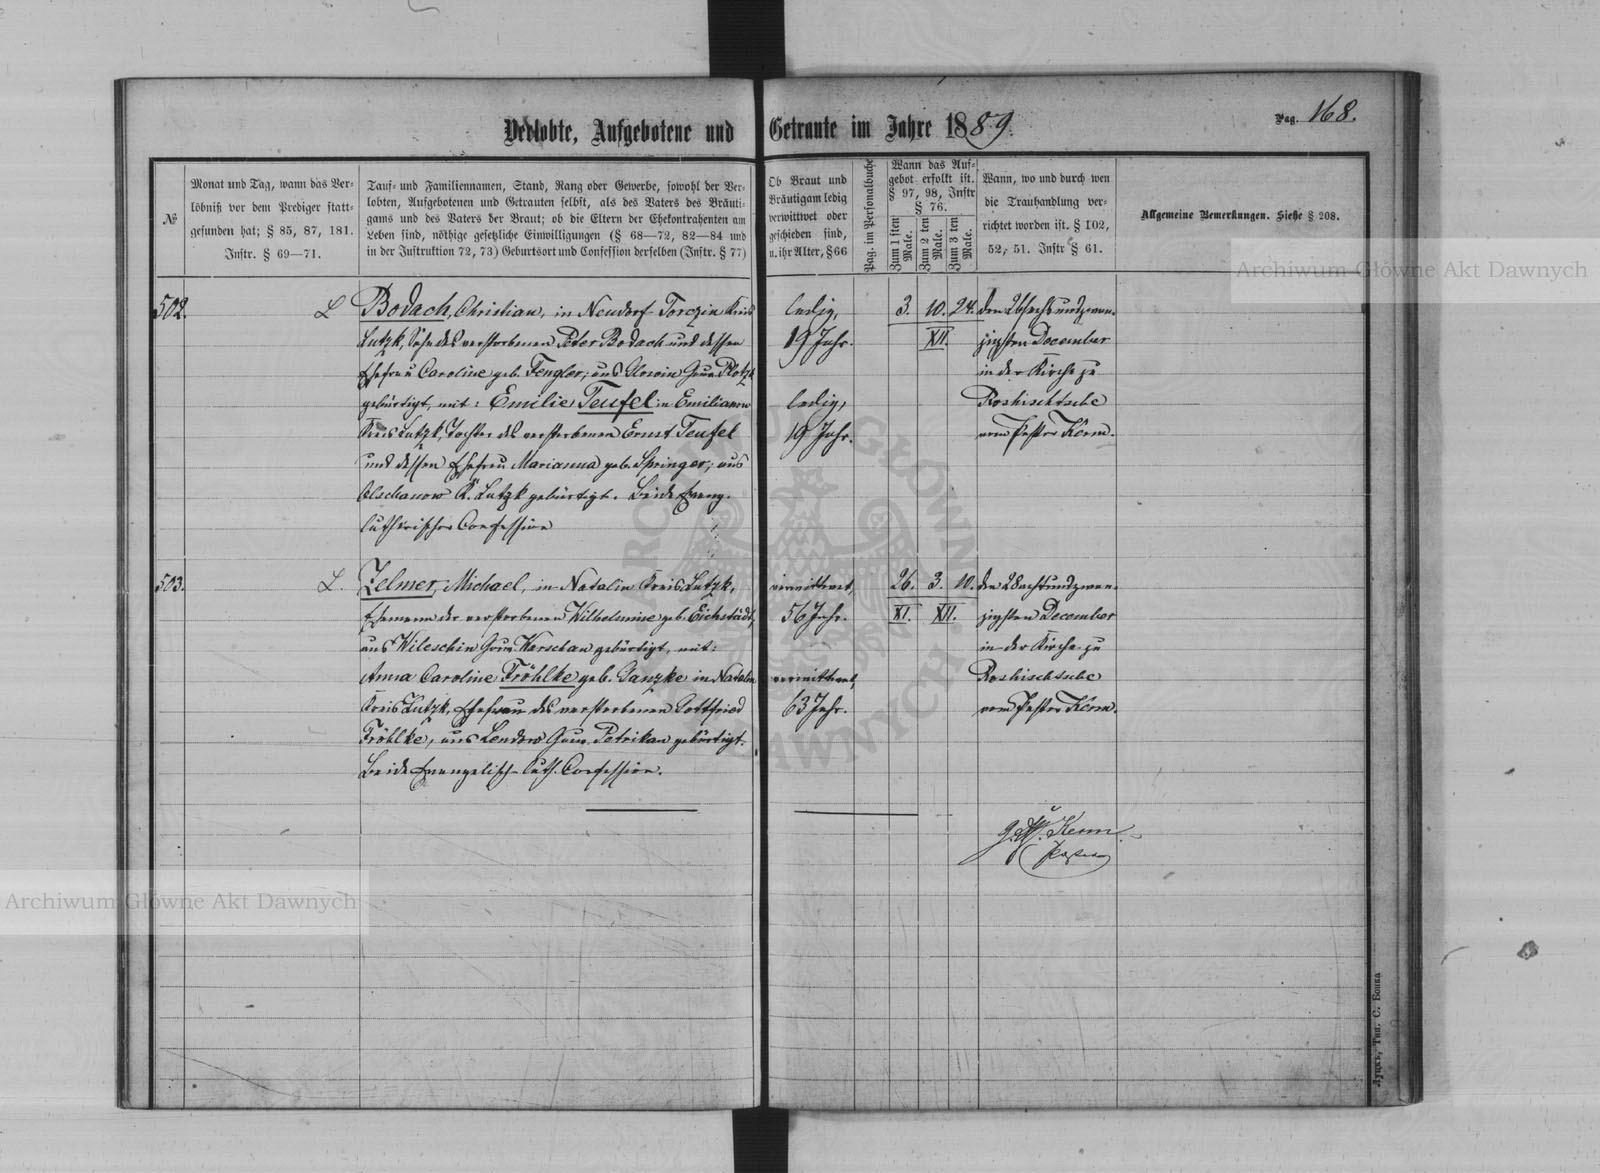 Verlobte, Aufgebotene und Getraute im Jahre 1889.
Pag. 168.
№
Monat und Tag, wann das Ver-
löbniß vor dem Prediger statt-
gefunden hat; § 85, 87, 181.
Instr. § 69—71.
Tauf- und Familiennamen, Stand, Rang oder Gewerbe, sowohl der Ver-
lobten, Aufgebotenen und Getrauten selbst, als des Vaters des Bräuti-
gams und des Vaters der Braut; ob die Eltern der Ehekontrahenten am
Leben sind, nöthige gesetzliche Einwilligungen (§ 68—72, 82—84 und
in der Instruktion 72, 73) Geburtsort und Confession derselben (Instr. § 77)
Ob Braut und
Bräutigam ledig
verwittwet oder
geschieden sind,
u. ihr Alter, § 66
Pag. im Personalbuche
Wann das Auf-
gebot erfolkt ist.
§ 97, 98, Instr
§ 76.
Zum 1 sten Male.
Zum 2 ten Male.
Zum 3 ten Male.
Wann, wo und durch wen
die Trauhandlung ver-
richtet worden ist. § 102,
52, 51. Instr § 61.
Allgemeine Bemerkungen. Siehe § 208.
502.
L
Bodach, Christian, in Neudorf Torczin Kreis
Lutzk, Sohn des verstorbenen Peter Bodach und dessen
Ehefrau Caroline geb. Fengler; aus Gouv. Plotzk
gebürtigt, mit: Emilie Teufel in Emilianow
Kreis Lutzk, Tochter des verstorbenen Ernst Teufel
und dessen Ehefrau Marianna geb. Springer, aus
Olschanow K. Lutzk gebürtigt. Beide Evang.
lutherischer Confession
ledig,
19 Jahr.
ledig,
19 Jahr.
3. 10. 24.
XII.
den 26 sechsundzwan-
zigsten December
in der Kirche zu
Roshischtsche
vom Pastor Kerm.
503.
L.
Zelmer, Michael, in Natalin Kreis Lutzk,
Ehemann der verstorbenen Wilhelmine geb. Eichstädt,
aus Wileschin Gouv. Warschau gebürtigt, mit:
Anna Caroline Fröhlke geb. Janzke in Natalin
Kreis Lutzk, Ehefrau des verstorbenen Gottfried
Fröhlke, aus Lendow Gouv. Petrikau gebürtigt.
Beide Evangelisch-Luth. Confession.
verwittwet,
56 Jahr.
verwittwet,
63 Jahr.
26. 3. 10.
XI. XII.
den 28 achtundzwan-
zigsten December
in der Kirche zu
Roshischtsche
vom Pastor Kerm.
Kerm
Pastor
Луцкъ, Тип. С. Бонка
Archiwum Główne Akt Dawnych
Archiwum Główne Akt Dawnych
ARCHIWUM GŁÓWNE AKT DAWNYCH